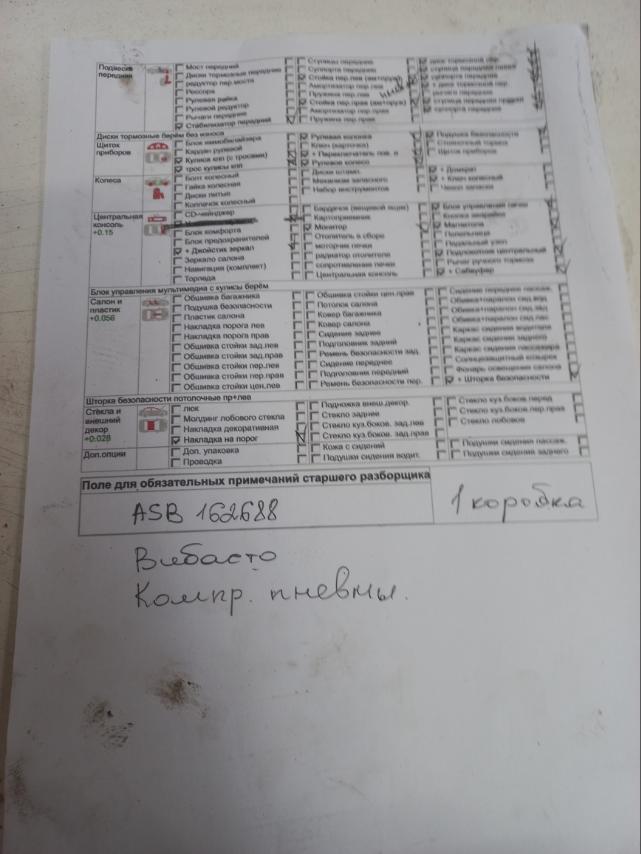 Подвеска передняя
Мост передний
Диски тормозные передние
редуктор пер.моста
Рессора
Рулевая рейка
Рулевой редуктор
Рычаги передние
Стабилизатор передний
Ступицы передние
Суппорта передние
Стойка пер.лев
Амортизатор пер.лев
Пружина пер.лев
Стойка пер.прав
Амортизатор пер.прав
Пружина пер.прав
Диски тормозные берём без износа
Щиток приборов
Блок иммобилайзера
Кардан рулевой
Кулиса кпп (с тросами)
трос кулисы кпп
Рулевая колонка
Ключ (карточка)
+ Переключатель пов. и
Рулевое колесо
Подушка безопасности
Щиток приборов
Колеса
Болт колесный
Гайка колесная
Диски литые
Колпачок колесный
Диски штамп.
Механизм запасного
Набор инструментов
+ Домкрат
+ Ключ колесный
Чехол запаски
Центральная консоль
+0.15
CD-чейнджер
Блок комфорта
Блок предохранителей
+ Джойстик зеркал
Зеркало салона
Навигация (комплект)
Торпеда
Бардачок (вещевой ящик)
Картоприемник
Монитор
Отопитель в сборе
моторчик печки
радиатор отопителя
сопротивление печки
Центральная консоль
Блок управления печки
Кнопка аварийки
Магнитола
Пепельница
Педальный узел
Подлокотник центральный
Рычаг ручного тормоза
+ Сабвуфер
Блок управления мультимедиа с кулисы берём
Салон и пластик
+0.056
Обшивка багажника
Подушка безопасности
Пластик салона
Накладка порога лев
Накладка порога прав
Обшивка стойки зад.лев
Обшивка стойки зад.прав
Обшивка стойки пер.лев
Обшивка стойки пер.прав
Обшивка стойки цен.лев
Обшивка стойки цен.прав
Потолок салона
Ковер багажника
Ковер салона
Сидение заднее
Подголовник задний
Ремень безопасности зад.
Сидение переднее
Подголовник передний
Ремень безопасности пер.
Сидение переднее пассаж.
Каркас сидения водителя
Каркас сидения заднего
Каркас сидения пассажира
Солнцезащитный козырек
Фонарь освещения салона
+ Шторка безопасности
Шторка безопасности потолочные пр+лев
Стёкла и внешний декор
+0.028
люк
Молдинг лобового стекла
Накладка декоративная
Накладка на порог
Подножка внеш.декор.
Стекло заднее
Стекло куз.боков. зад.лев
Стекло куз.боков. зад.прав
Стекло куз.боков.перед
Стекло куз.боков.пер.прав
Стекло лобовое
Доп.опции
Доп. упаковка
Проводка
Кожа с сидений
Подушки сидения водит.
Подушки сидения пассаж.
Подушки сидения заднего
Поле для обязательных примечаний старшего разборщика
ASB 162688
1 коробка
Вибасто
Компр. пневмы.